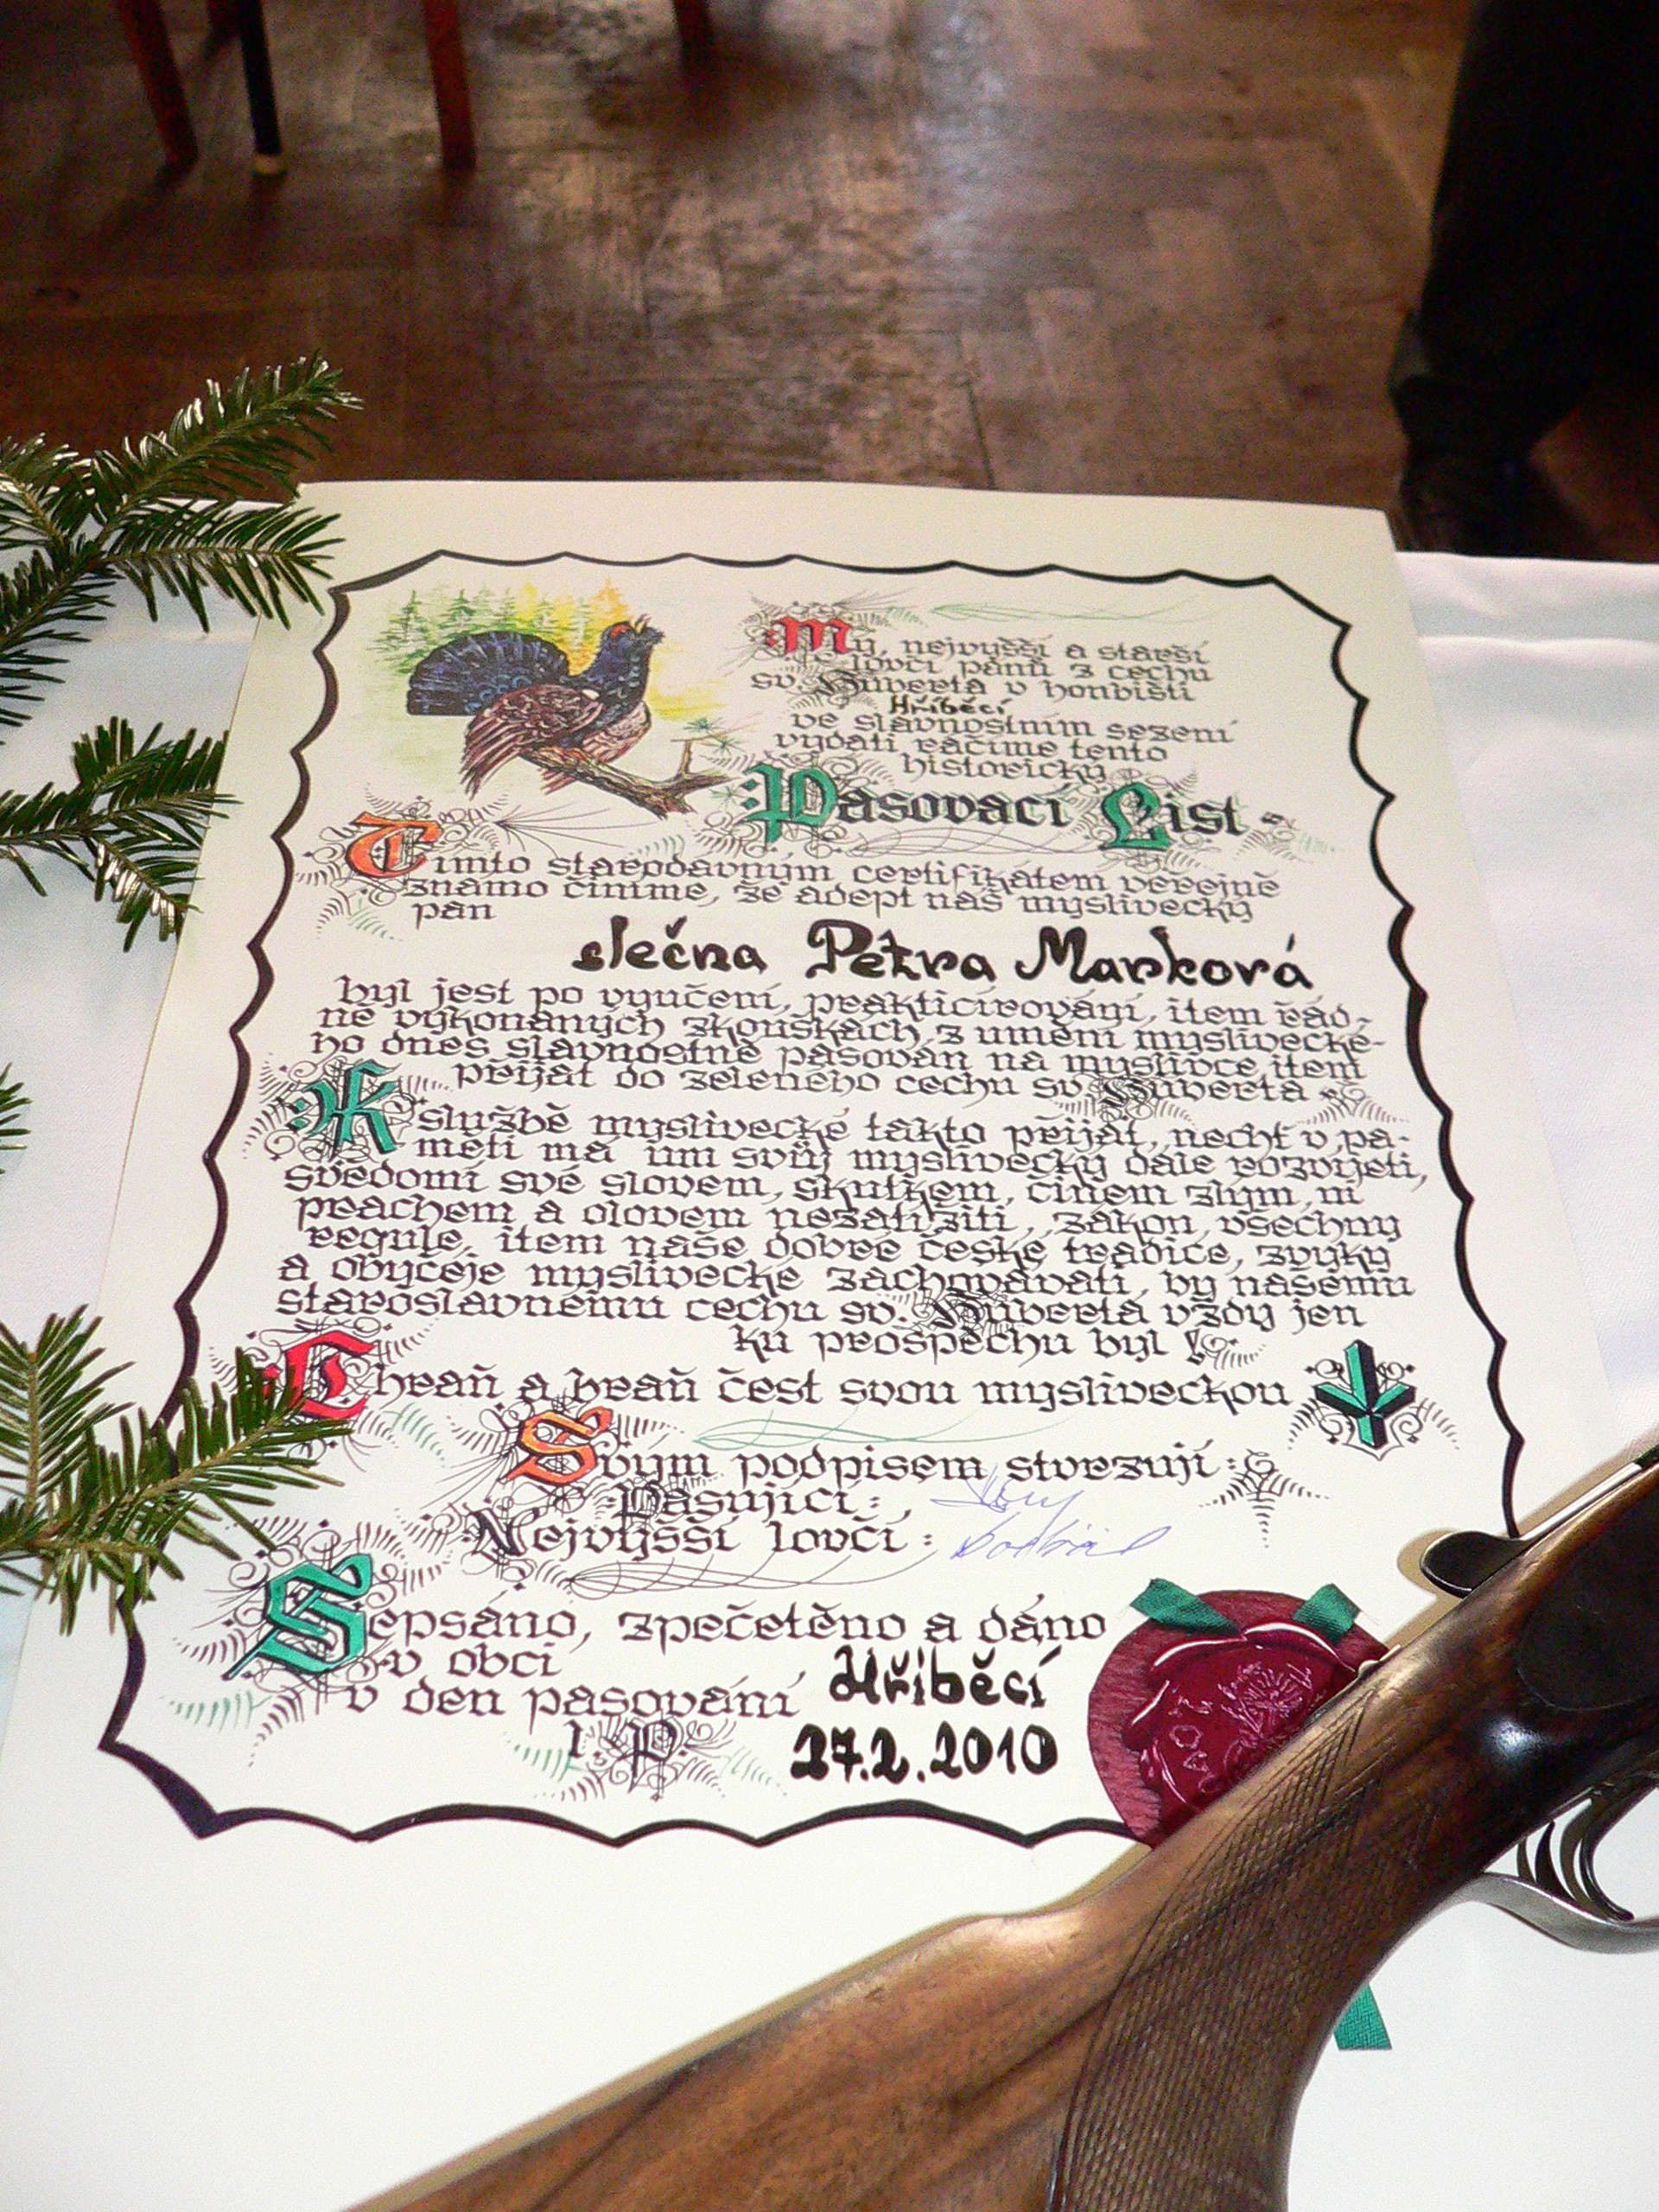 My, nejvyšší a starší
lovčí pánů z cechu
sv. Huberta v honbišti
Hříběcí
ve slavnostním sezení
vydati ráčíme tento
historický
Pasovací List
Tímto starodávným certifikátem veřejně
známo činíme, že adept náš myslivecký
pan
slečna Petra Marková
byl jest po vyučení, prakticírování, item řád-
ně vykonaných zkouškách, z umění myslivecké-
ho dnes slavnostně pasován na myslivce item
přijat do zeleného cechu sv. Huberta
K službě myslivecké takto přijat, nechť v pa-
měti má um svůj myslivecký dále rozvíjeti,
svědomí své slovem, skutkem, činem zlým, ni
prachem a olovem nezatížiti, zákon, všechny
regule, item naše dobré české tradice, zvyky
a obyčeje myslivecké zachovávati, by našemu
staroslavnému cechu sv. Huberta vždy jen
ku prospěchu byl!
Chraň a braň čest svou mysliveckou
Svým podpisem stvrzují:
Pasující:
Nejvyšší lovčí:
Sepsáno, zpečetěno a dáno
v obci
Hříběcí
v den pasování
L.P. 27.2.2010